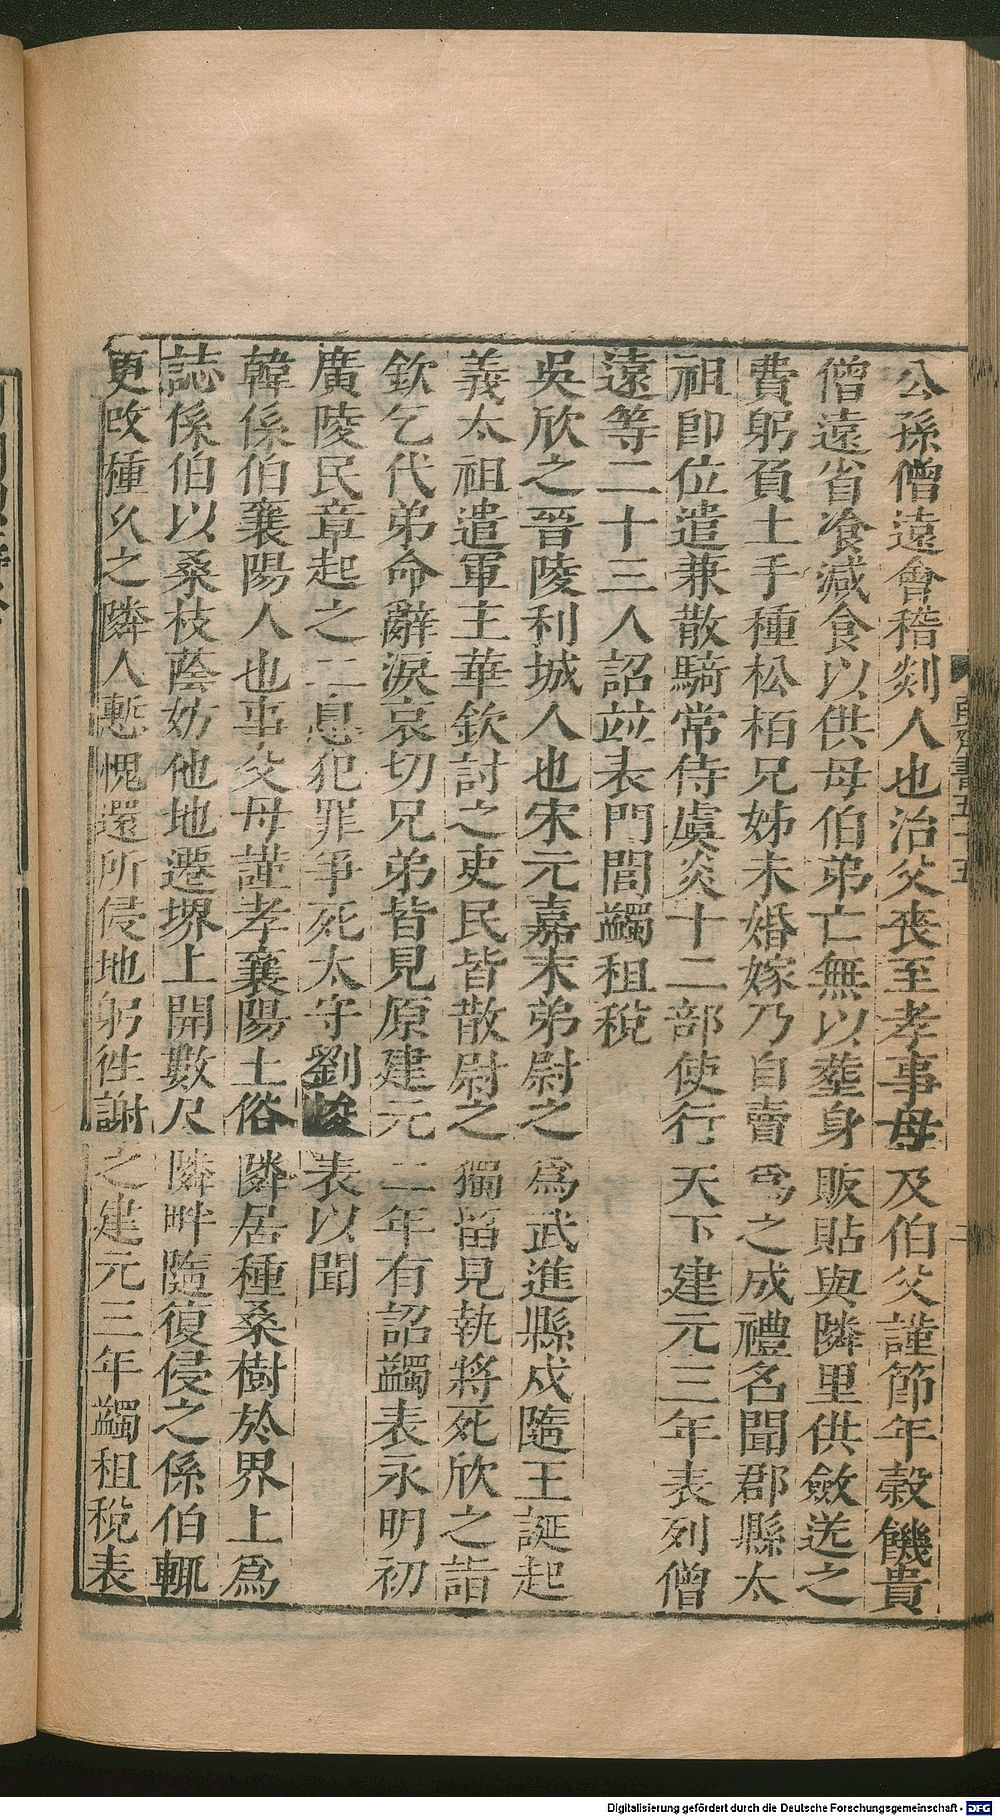 公孫僧遠會稽剡人也治父喪至孝事母及伯父謹節年穀饑貴
僧遠省飡減食以供母伯弟亡無以塟身販貼與隣里供斂送之
費躬負土手種松栢兄姊未婚嫁乃自賣爲之成禮名聞郡縣太
祖即位遣兼散騎常侍虞炎十二部使行天下建元三年表列僧
遠等二十三人詔竝表門閭蠲租稅
吳欣之晉陵利城人也宋元嘉末弟尉之爲武進縣戍隨王誕起
義太祖遣軍主華欽討之吏民皆散尉之獨留見執將死欣之詣
欽乞代弟命辭淚哀切兄弟皆見原建元二年有詔蠲表永明初
廣陵民章起之二息犯罪爭死太守劉悛表以聞
韓係伯襄陽人也事父母謹孝襄陽土俗隣居種桑樹於界上爲
誌係伯以桑枝蔭妨他地遷堺上開數尺隣畔隨復侵之係伯輒
更改種久之隣人慙愧還所侵地躬往謝之建元三年蠲租稅表
南齊書五十五
二
Digitalisierung gefördert durch die Deutsche Forschungsgemeinschaft - DFG